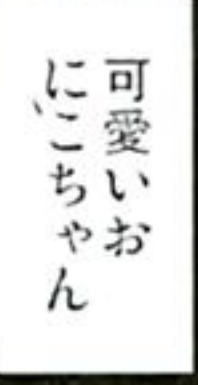 可愛いお
にこちゃん